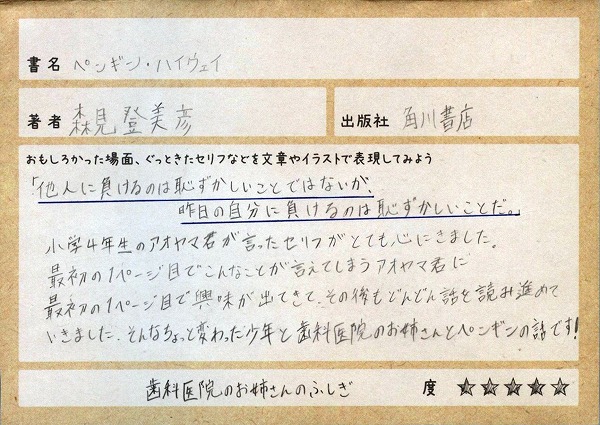 書名 ペンギン・ハイウェイ
著者 森見登美彦
出版社 角川書店
おもしろかった場面、ぐっときたセリフなどを文章やイラストで表現してみよう
「他人に負けるのは恥ずかしいことではないが、
昨日の自分に負けるのは恥ずかしいことだ。」
小学4年生のアオヤマ君が言ったセリフがとても心にきました。
最初の1ページ目でこんなことが言えてしまうアオヤマ君に
最初の1ページ目で興味が出てきて、その後もどんどん話を読み進めて
いきました。そんなちょっと変わった少年と歯科医院のお姉さんとペンギンの話です!
歯科医院のお姉さんのふしぎ 度 ★★★★★